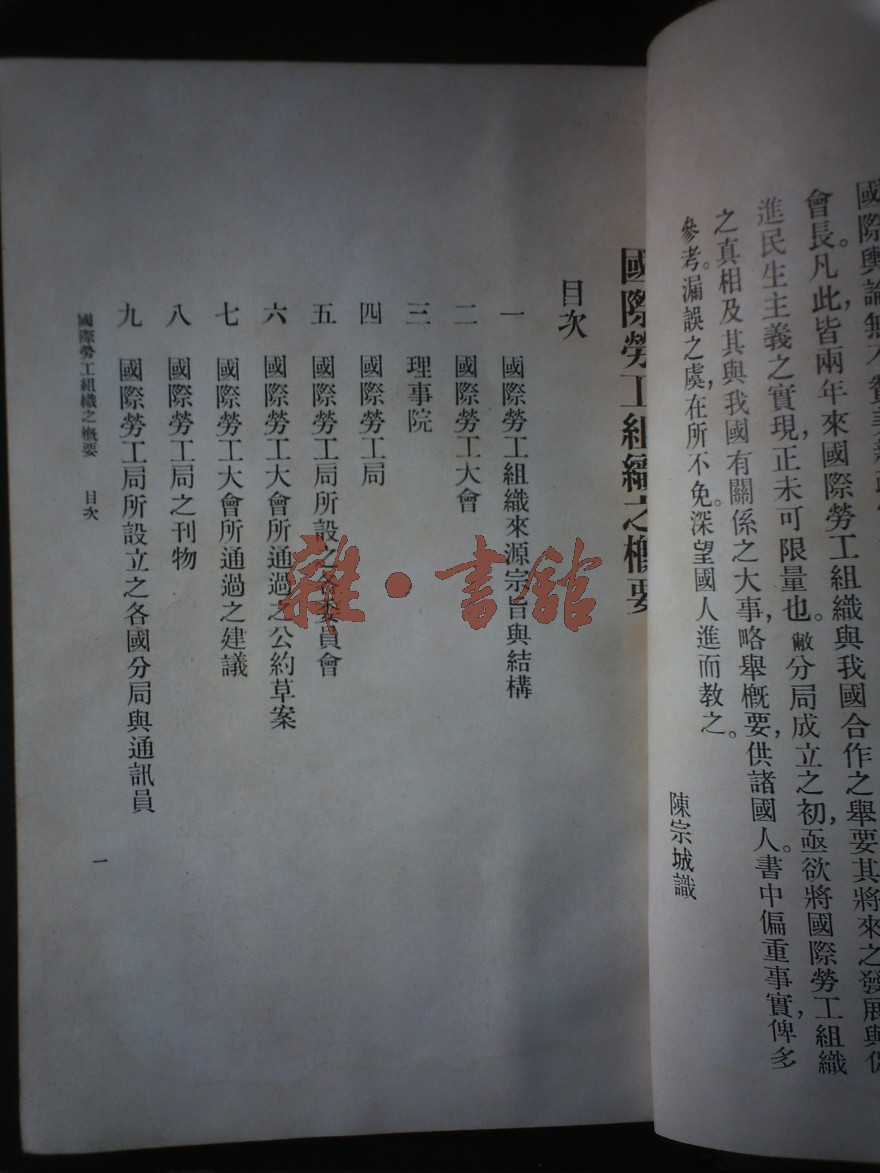 國際輿論無不贊美
會長。凡此皆兩年來國際勞工組織與我國合作之舉要其將來之發展與促
進民生主義之實現,正未可限量也。敝分局成立之初,亟欲將國際勞工組織
之真相及其與我國有關係之大事,略舉概要,供諸國人。書中偏重事實,俾多
參考。漏誤之虞,在所不免。深望國人進而教之。
陳宗城識
國際勞工組織之概要
目次
一 國際勞工組織來源宗旨與結構
二 國際勞工大會
三 理事院
四 國際勞工局
五 國際勞工局所設之各委員會
六 國際勞工大會所通過之公約草案
七 國際勞工大會所通過之建議
八 國際勞工局之刊物
九 國際勞工局所設立之各國分局與通訊員
國際勞工組織之概要 目次
一
雜·書館